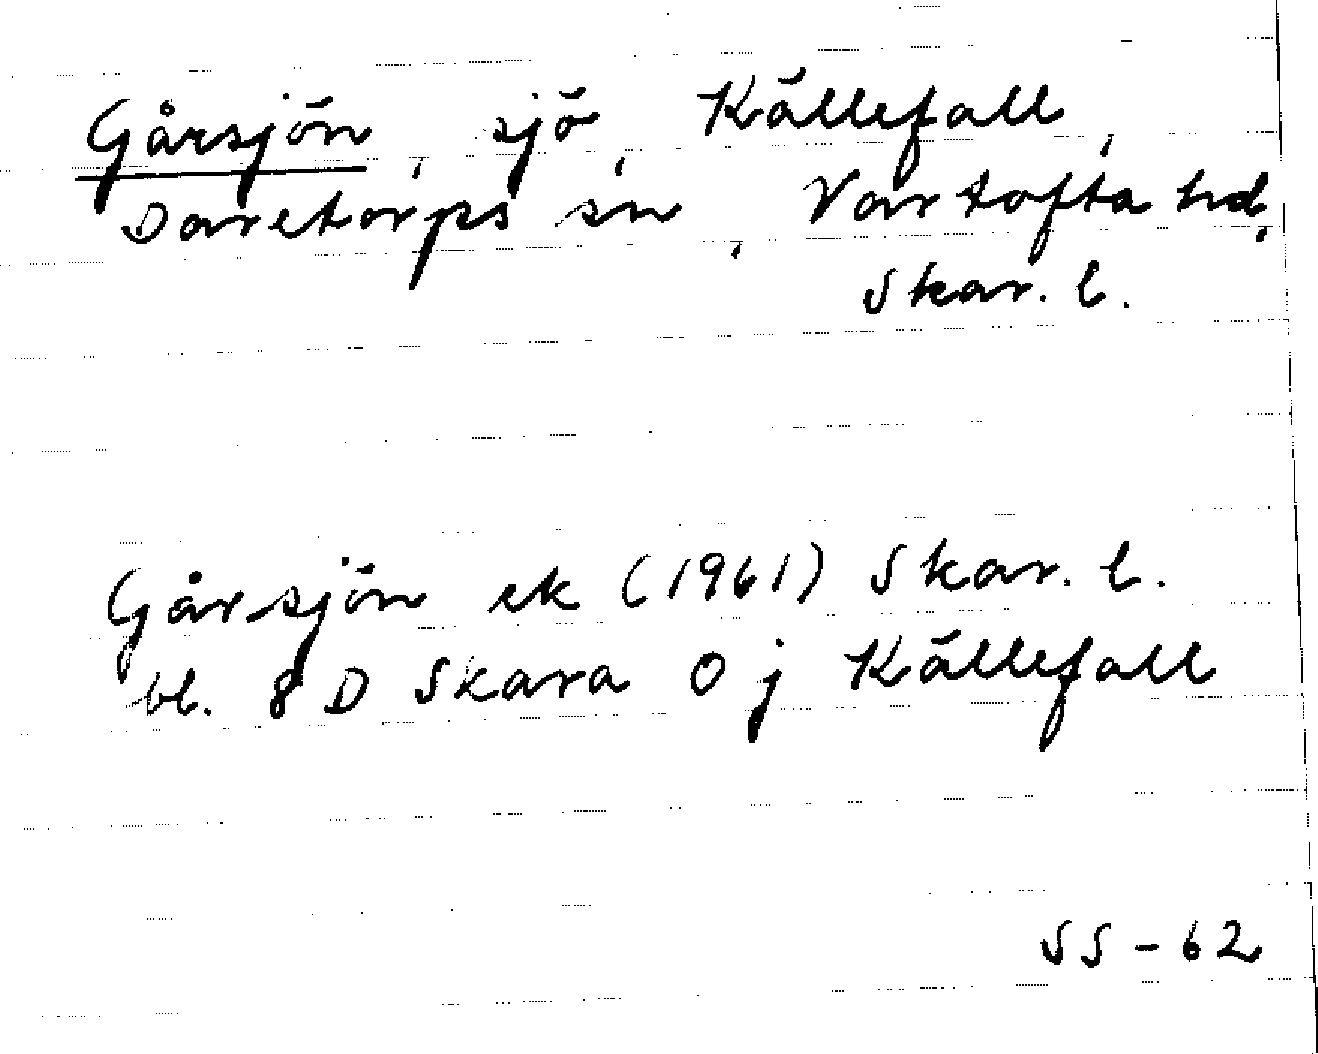 Gårsjön, sjö, Källefall,
Daretorps sn, Vartofta hd,
Skar. l.
Gårsjön ek (1961) Skar. l.
bl. 8 D Skara 0 j Källefall
SS - 62